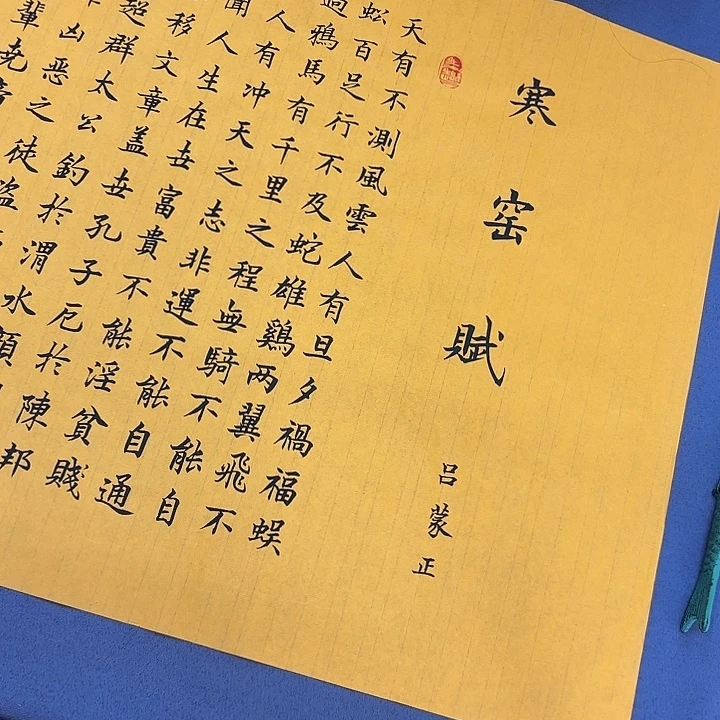 寒窑赋
呂蒙正
天有不測風雲人有旦夕禍福蜈
蚣百足行不及蛇雄鷄两翼飛不
過鴉馬有千里之程無騎不能自
人有冲天之志非運不能自通
聞人生在世富貴不能淫貧賤
移文章盖世孔子厄於陳邦
超群太公釣於渭水顏
凶惡之徒盜
輩堯